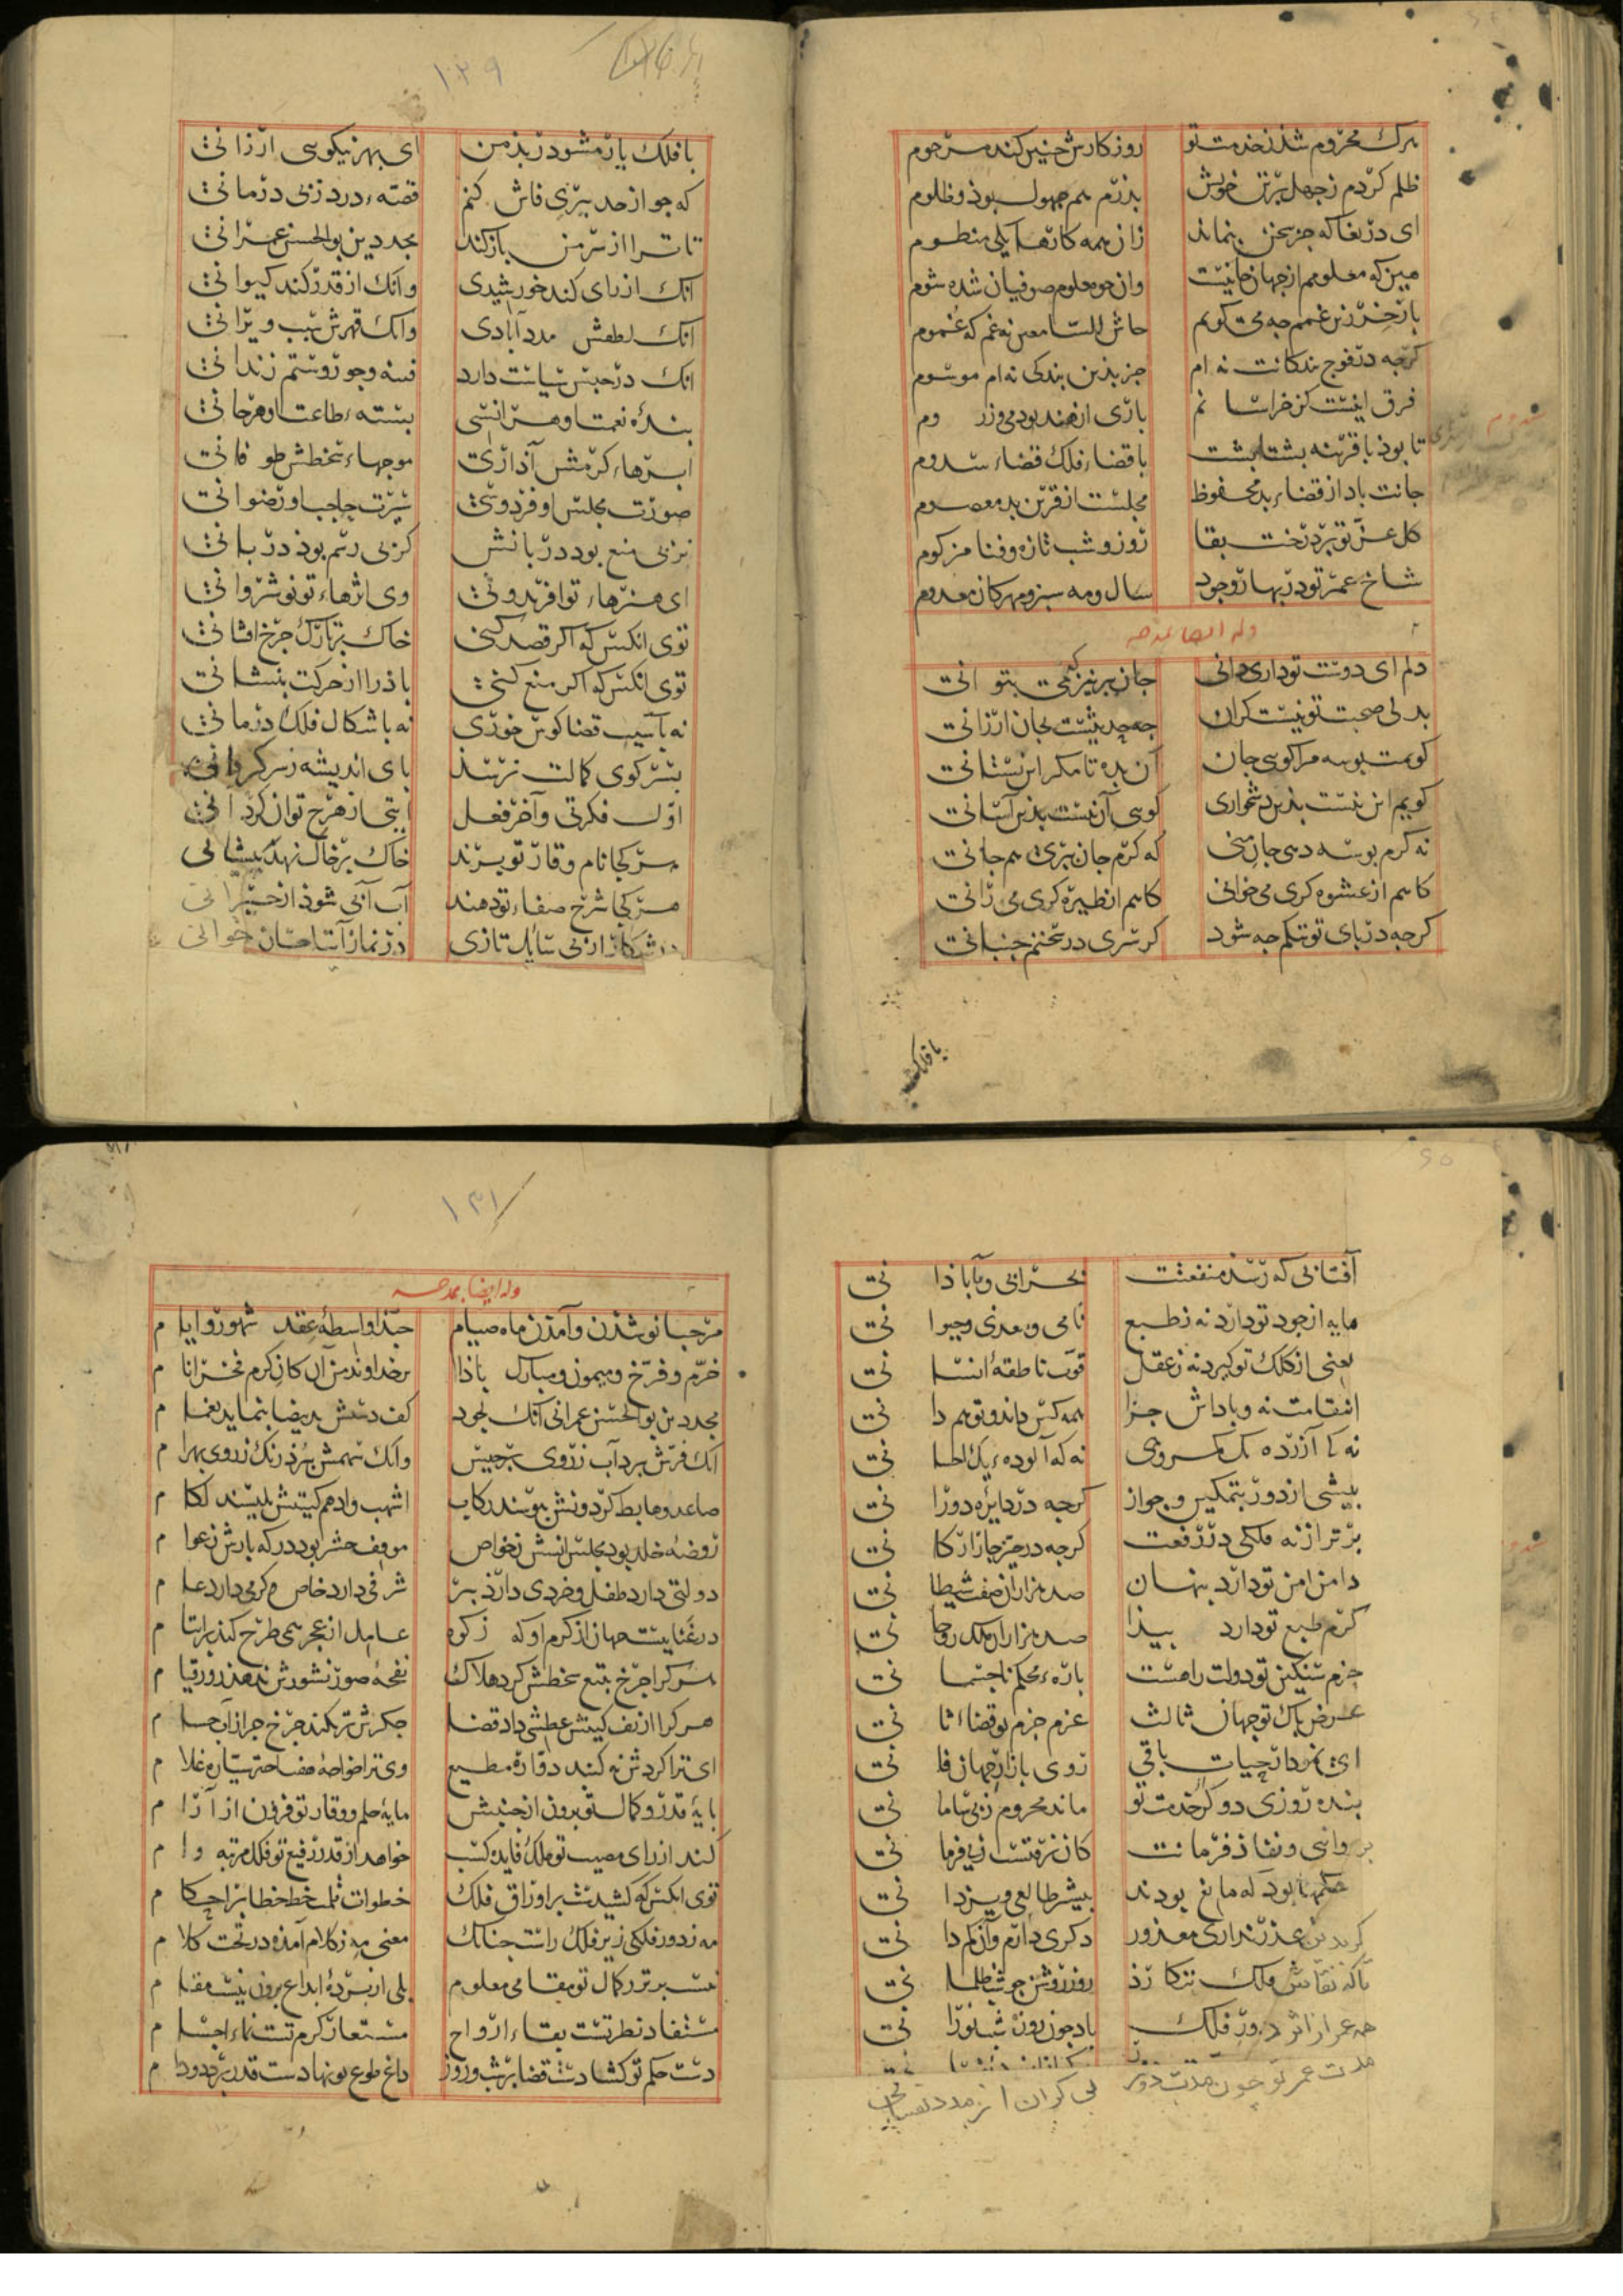 هرک محروم شد ز خدمت تو روزکارش چنین کند مرحوم
ظلم کردم ز جهل بر تن خویش بذرم هم جهول بوذ و ظلوم
ای دریغا که جز سخن بنماند زان همه کارها یکی منظوم
مین که معلومم از جهان جانیست وان چو معلوم صوفیان شده شوم
باز خر زین غمم چه می کویم حاش لله نه غم که غموم
کرچه در فوج بندکانت نه ام جز بذین بندکی نه ام موسوم
فرق اینست کز خراسانم باری از هند بودمی وز روم
تا بوذ با قرینه بشتابشت با قضاء فلک قضاء سدوم
جانت باد از قضاء بد محفوظ مجلست از قرین بد معصوم
کل عز تو بر درخت بقا روز و شب تازه و فنا مزکوم
شاخ عمر تو در بهار وجود سال و مه سبز و مهرکان معدوم
وله ایضا یمدحه
دلم ای دوست تو داری دانی جان ببر نیز که می بتوانی
بدلی صحبت تو نیست کران چه حدیثست بجان ارزانی
کویمت بوسه مرا کویی جان آن بده تا مکر این بستانی
کویم این نیست بذین دشواری کویی آن نیست بذین آسانی
نه کرم بوسه دهی جان منی که کرم جان ببری هم جانی
کاهم از عشوه کری می خوانی کاهم از طیره کری می رانی
کرچه در پای تو بتکم چه شود کر سری در سخنم جنبانی
با فلک
۱۲۹
با فلک یار مشو در بذ من ای بهر نیکویی ارزانی
که جو از حد ببری فاش کنم قصه درد ز بی درمانی
تا ترا از سر من باز کند مجد دین بوالحسن عمرانی
انک از رای کند خورشیدی وانک از قدر کند کیوانی
انک لطفش مدد آبادی وانک قهرش سبب ویرانی
انک در حبس سیاست دارد فتنه و جور و ستم زندانی
بندهٔ نعمت او هر انسی بسته طاعت او هر جانی
ابرهاء کرمش آذاری موجهاء سخطش طوفانی
صورت مجلس او فردوسی سیرت حاجب او رضوانی
نز بی منع بود دربانش کز بی رسم بوذ دربانی
ای هنرهاء تو افریدونی وی اثرهاء تو نوشروانی
توی انکس که اکر قصد کنی خاک بر تارک چرخ افشانی
توی انکس که اکر منع کنی باذ را از حرکت بنشانی
نه بآسیب قضا کوس خوری نه باشکال فلک درمانی
بسر کوی کمالت نرسذ پای اندیشه ز سرکردانی
اول فکرتی و آخر فعل ایتی از هرچ توان کرد آنی
هر کجا نام وقار تو برند خاک بر خاک نهد پیشانی
هر کجا شرح صفاء تو دهند آب آبی شوذ از حیرانی
در شکار از بی سایل تازی در نماز آیت احسان خوانی
آفتابی که رسد منفعتت بخرابی و بآباذانی
مایه از جود تو دارد نه ز طبع نامی و معدنی و حیوانی
یعنی از کلک تو کیرد نه ز عقل قوت ناطقهٔ انسانی
انتقامت نه و باداش جزا همه کس داند و تو هم دانی
بیشی از دور بتمکین و جواز کرچه در دایره دورانی
برتر از نه فلکی در رفعت کرچه در حیز چار ارکانی
دامن امن تو دارد بنهان صد هزاران صفت شیطانی
کرم طبع تو دارد بیذا صد هزاران ملک روحانی
حزم سنکین تو دولت را هست باره محکم ناجسمانی
عرض پاک تو جهان ثالث عزم جزم تو قضاء ثانی
بنده روزی دو کر از خدمت تو ماند محروم ز بی سامانی
بروانی و نفاذ فرمانت کان نرفتست ز بی فرمانی
حکمها بود که مانع بودند بیشتر طالعی و یزدانی
کر بدین عذر نداری معذور دکری دارم و آن کم دانی
تا که نقاش فلک ننکارذ روز روشن چو شب ظلمانی
همه عمر از اثر دور فلک باد چون روز شب نورانی
مدت عمر تو چون مدت دور بی کران از مدد نفسانی
۱۳۱
وله ایضا یمدحه
مرحبا نو شدن و آمدن ماه صیام حبذا واسطهٔ عقد شهور و ایام
خرم و فرخ و میمون و مبارک باذا بر خداوند من آن کان کرم فخر انام
مجد دین بوالحسن عمرانی آنک بجود کف دستش ید بیضا بنماید بغمام
انک فرش ببرد آب ز روی برجیس وانک سهمش ببرذ رنک ز روی بهرام
صاعد و هابط کردونش ببوسند رکاب اشهب و ادهم کیتیش بلیسند لکام
روضهٔ خلد بود مجلس انسش ز خواص موقف حشر بود درکه بارش ز عوام
دولتی دارد طفل و خردی دارذ بیر شرفی دارد خاص و کرمی دارد عام
هر کرا چرخ بتیغ سخطش کرد هلاک نفخهٔ صور نشورش ندهد روز قیام
هر کرا از تف کینش عطشی داد قضا جکرش تر نکند چرخ جز از آب حسام
ای ترا کردش نه کنبد دوار مطیع وی ترا خواجهٔ هفت اختر سیاره غلام
پایهٔ قدر و کمالت برون از جنبش مایهٔ حلم و وقار تو فزون از آرام
کند از رای مصیب تو ملک فایده کسب خواهد از قدر رفیع تو فلک مرتبه وام
توی انکس که کشیدست بر اوراق فلک خطوات قلمت خط خطا بر احکام
مه ز دور فلکی زیر فلک راست چنانک معنی مه ز کلام آمده در تحت کلام
نیست برتر ز کمال تو مقامی معلوم بلی از پردهٔ ابداع برون نیست مقام
مستفاد نظر تست بقاء ارواح مستعار کرم تست نماء اجسام
دست حکم تو کشادست قضا بر شب و روز داغ طوع تو نهادست قدر بر دد و دام